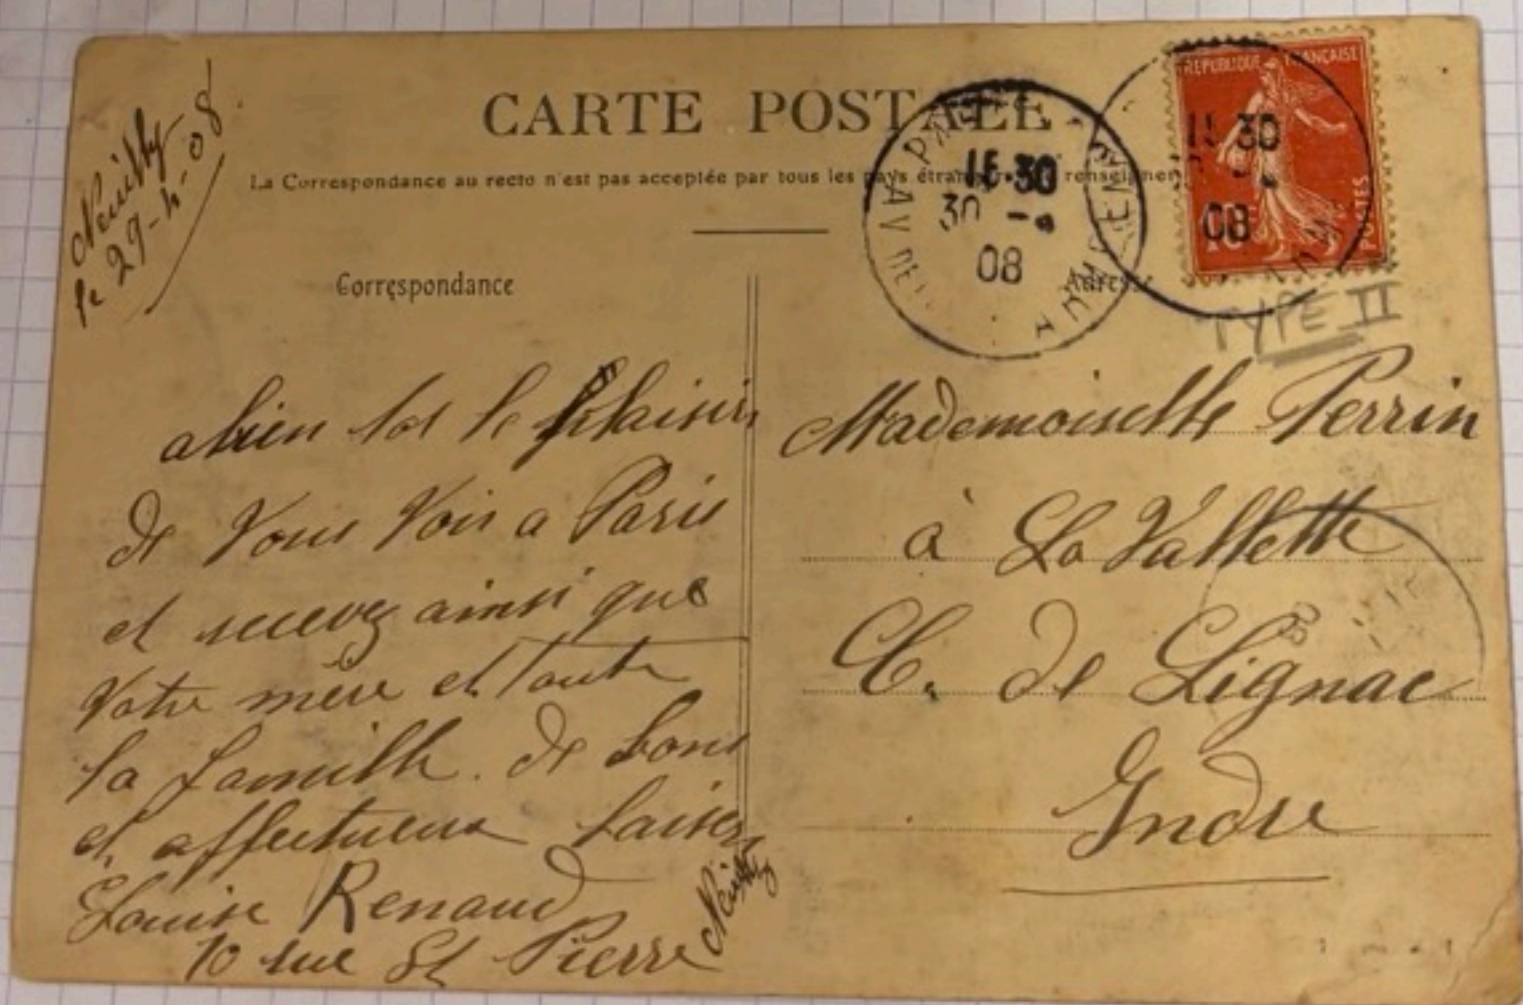 Neuilly
le 29-4-08
CARTE POSTALE
La Correspondance au recto n'est pas acceptée par tous les pays étrangers renseignem
Correspondance
Adresse
PARIS
AV DE
11 30
30 -4
08
REPUBLIQUE FRANÇAISE
POSTES
10
11 30
08
TYPE II
abien tot le plaisir
de Vous Voir a Paris
et recevez ainsi que
Votre mère et toute
la famille. de bons
et affectueux baisers
Louise Renaud
10 rue St Pierre Neuilly
Mademoiselle Perrin
à La Vallette
C. de Lignac
Indre